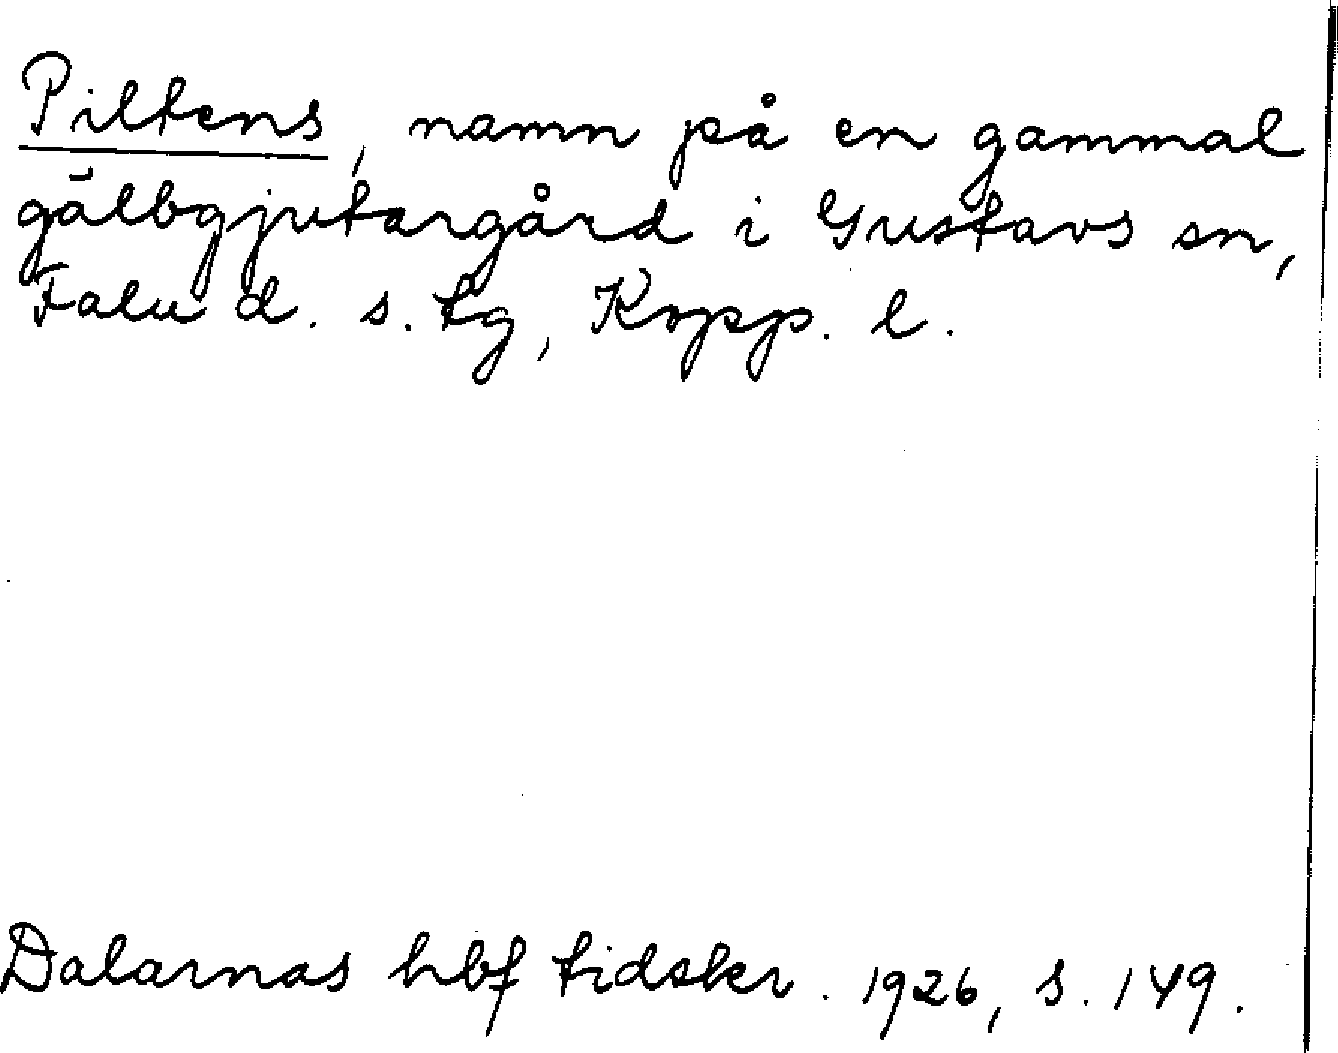 Piltens, namn på en gammal
gälbgjutargård i Gustavs sn,
Falu d. s. tg, Kopp. l.
Dalarnas hbf tidskr. 1926, s. 149.